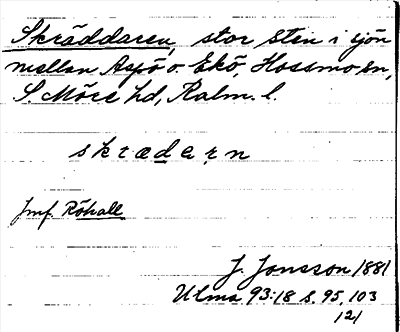 Skräddaren, stor sten i sjön
mellan Aspö o. Ekö, Hossmo sn,
S. Möre hd, Kalm. l.
skrædarn
Jmf. Röhall
J. Jonsson 1881
Ulma 93:18 s. 95, 103
121